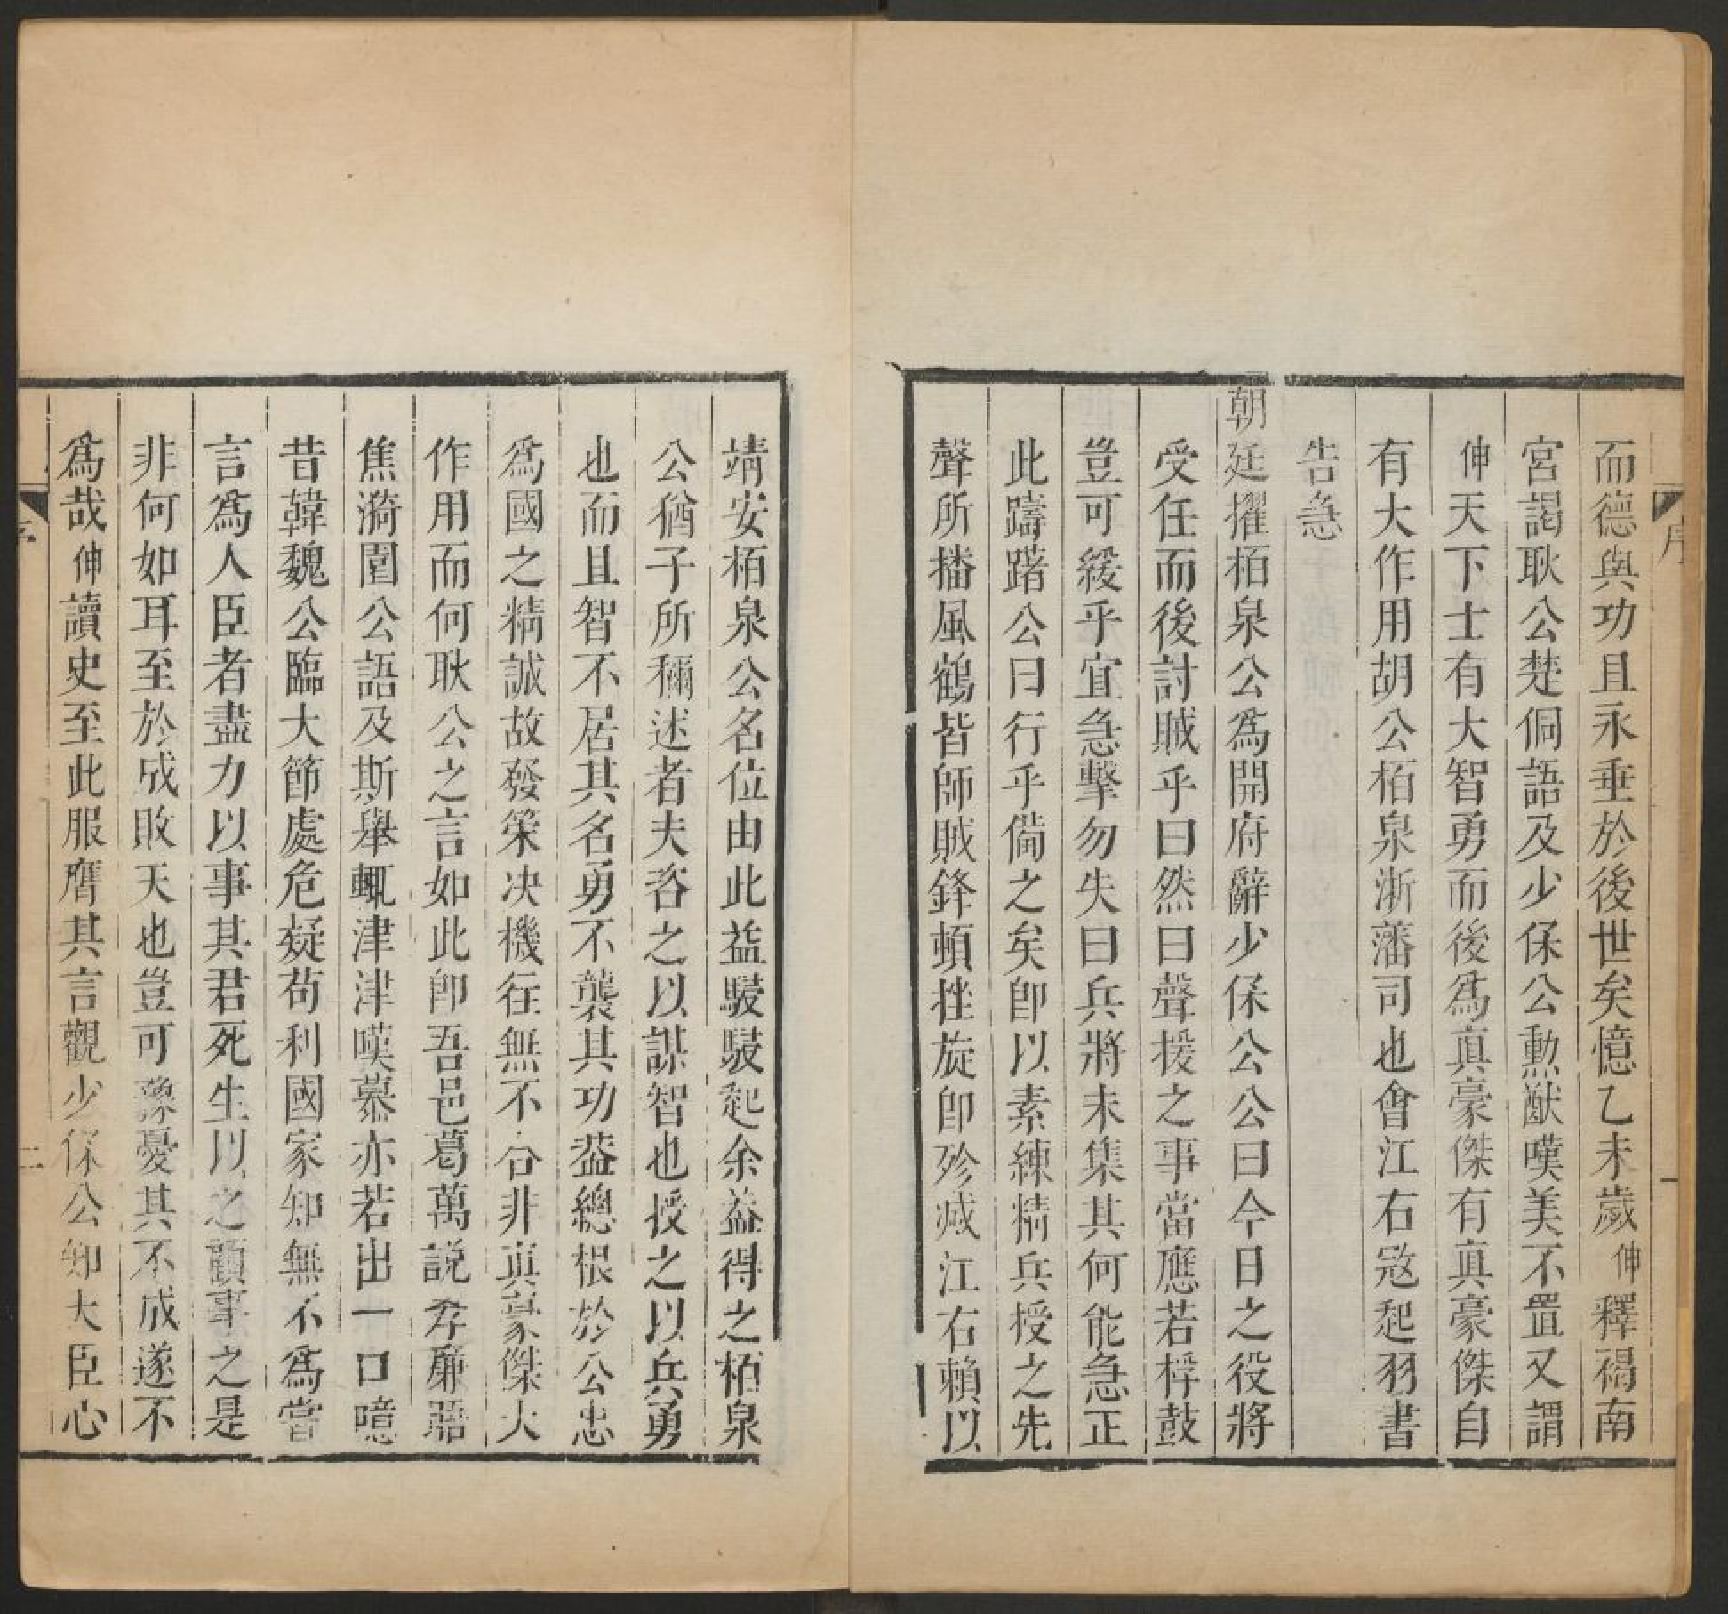 序
一
而德與功且永垂於後世矣憶乙未歲伸釋褐南
宮謁耿公楚侗語及少保公勳猷嘆美不置又謂
伸天下士有大智勇而後爲真豪傑有真豪傑自
有大作用胡公栢泉浙藩司也會江右宼起羽書
告急
朝廷擢栢泉公爲開府辭少保公公曰今日之役將
受任而後討賊乎曰然曰聲援之事當應若桴鼓
豈可緩乎宜急擊勿失曰兵將未集其何能急正
此躊躇公曰行乎備之矣卽以素練精兵授之先
聲所播風鶴皆師賊鋒頓挫旋卽殄滅江右賴以
靖安栢泉公名位由此益駸駸起余益得之栢泉
公猶子所稱述者夫咨之以謀智也授之以兵勇
也而且智不居其名勇不襲其功葢總根於公忠
爲國之精誠故發策决機徃無不合非真豪傑大
作用而何耿公之言如此卽吾邑葛萬説孝廉
焦漪園公語及斯舉輒津津嘆慕亦若出一口噫
昔韓魏公臨大節處危疑苟利國家知無不爲嘗
言爲人臣者盡力以事其君死生以之顧事之是
非何如耳至於成敗天也豈可豫憂其不成遂不
爲哉伸讀史至此服膺其言觀少保公知大臣心
序
二